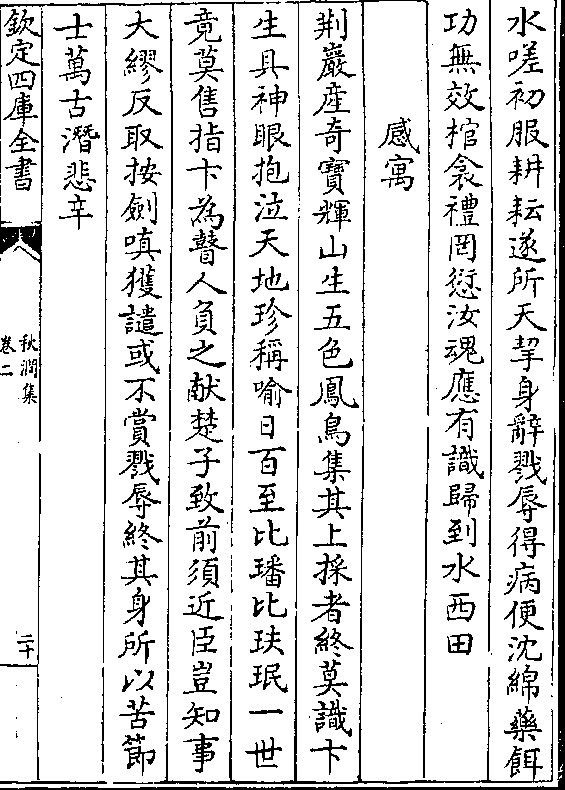 水嗟初服耕耘遂所天挈身辭戮辱得病便沈綿藥餌
功無效棺衾禮罔愆汝魂應有識歸到水西田
感寓
荆巖産奇寶輝山生五色鳳鳥集其上採者終莫識卞
生具神眼抱泣天地珍稱喻日百至比璠比玞珉一世
竟莫售指卞為瞽人負之献楚子致前須近臣豈知事
大繆反取按劍嗔獲譴或不賞戮辱終其身所以苦節
士萬古潛悲辛
欽定四庫全書
秋澗集
卷二
二十